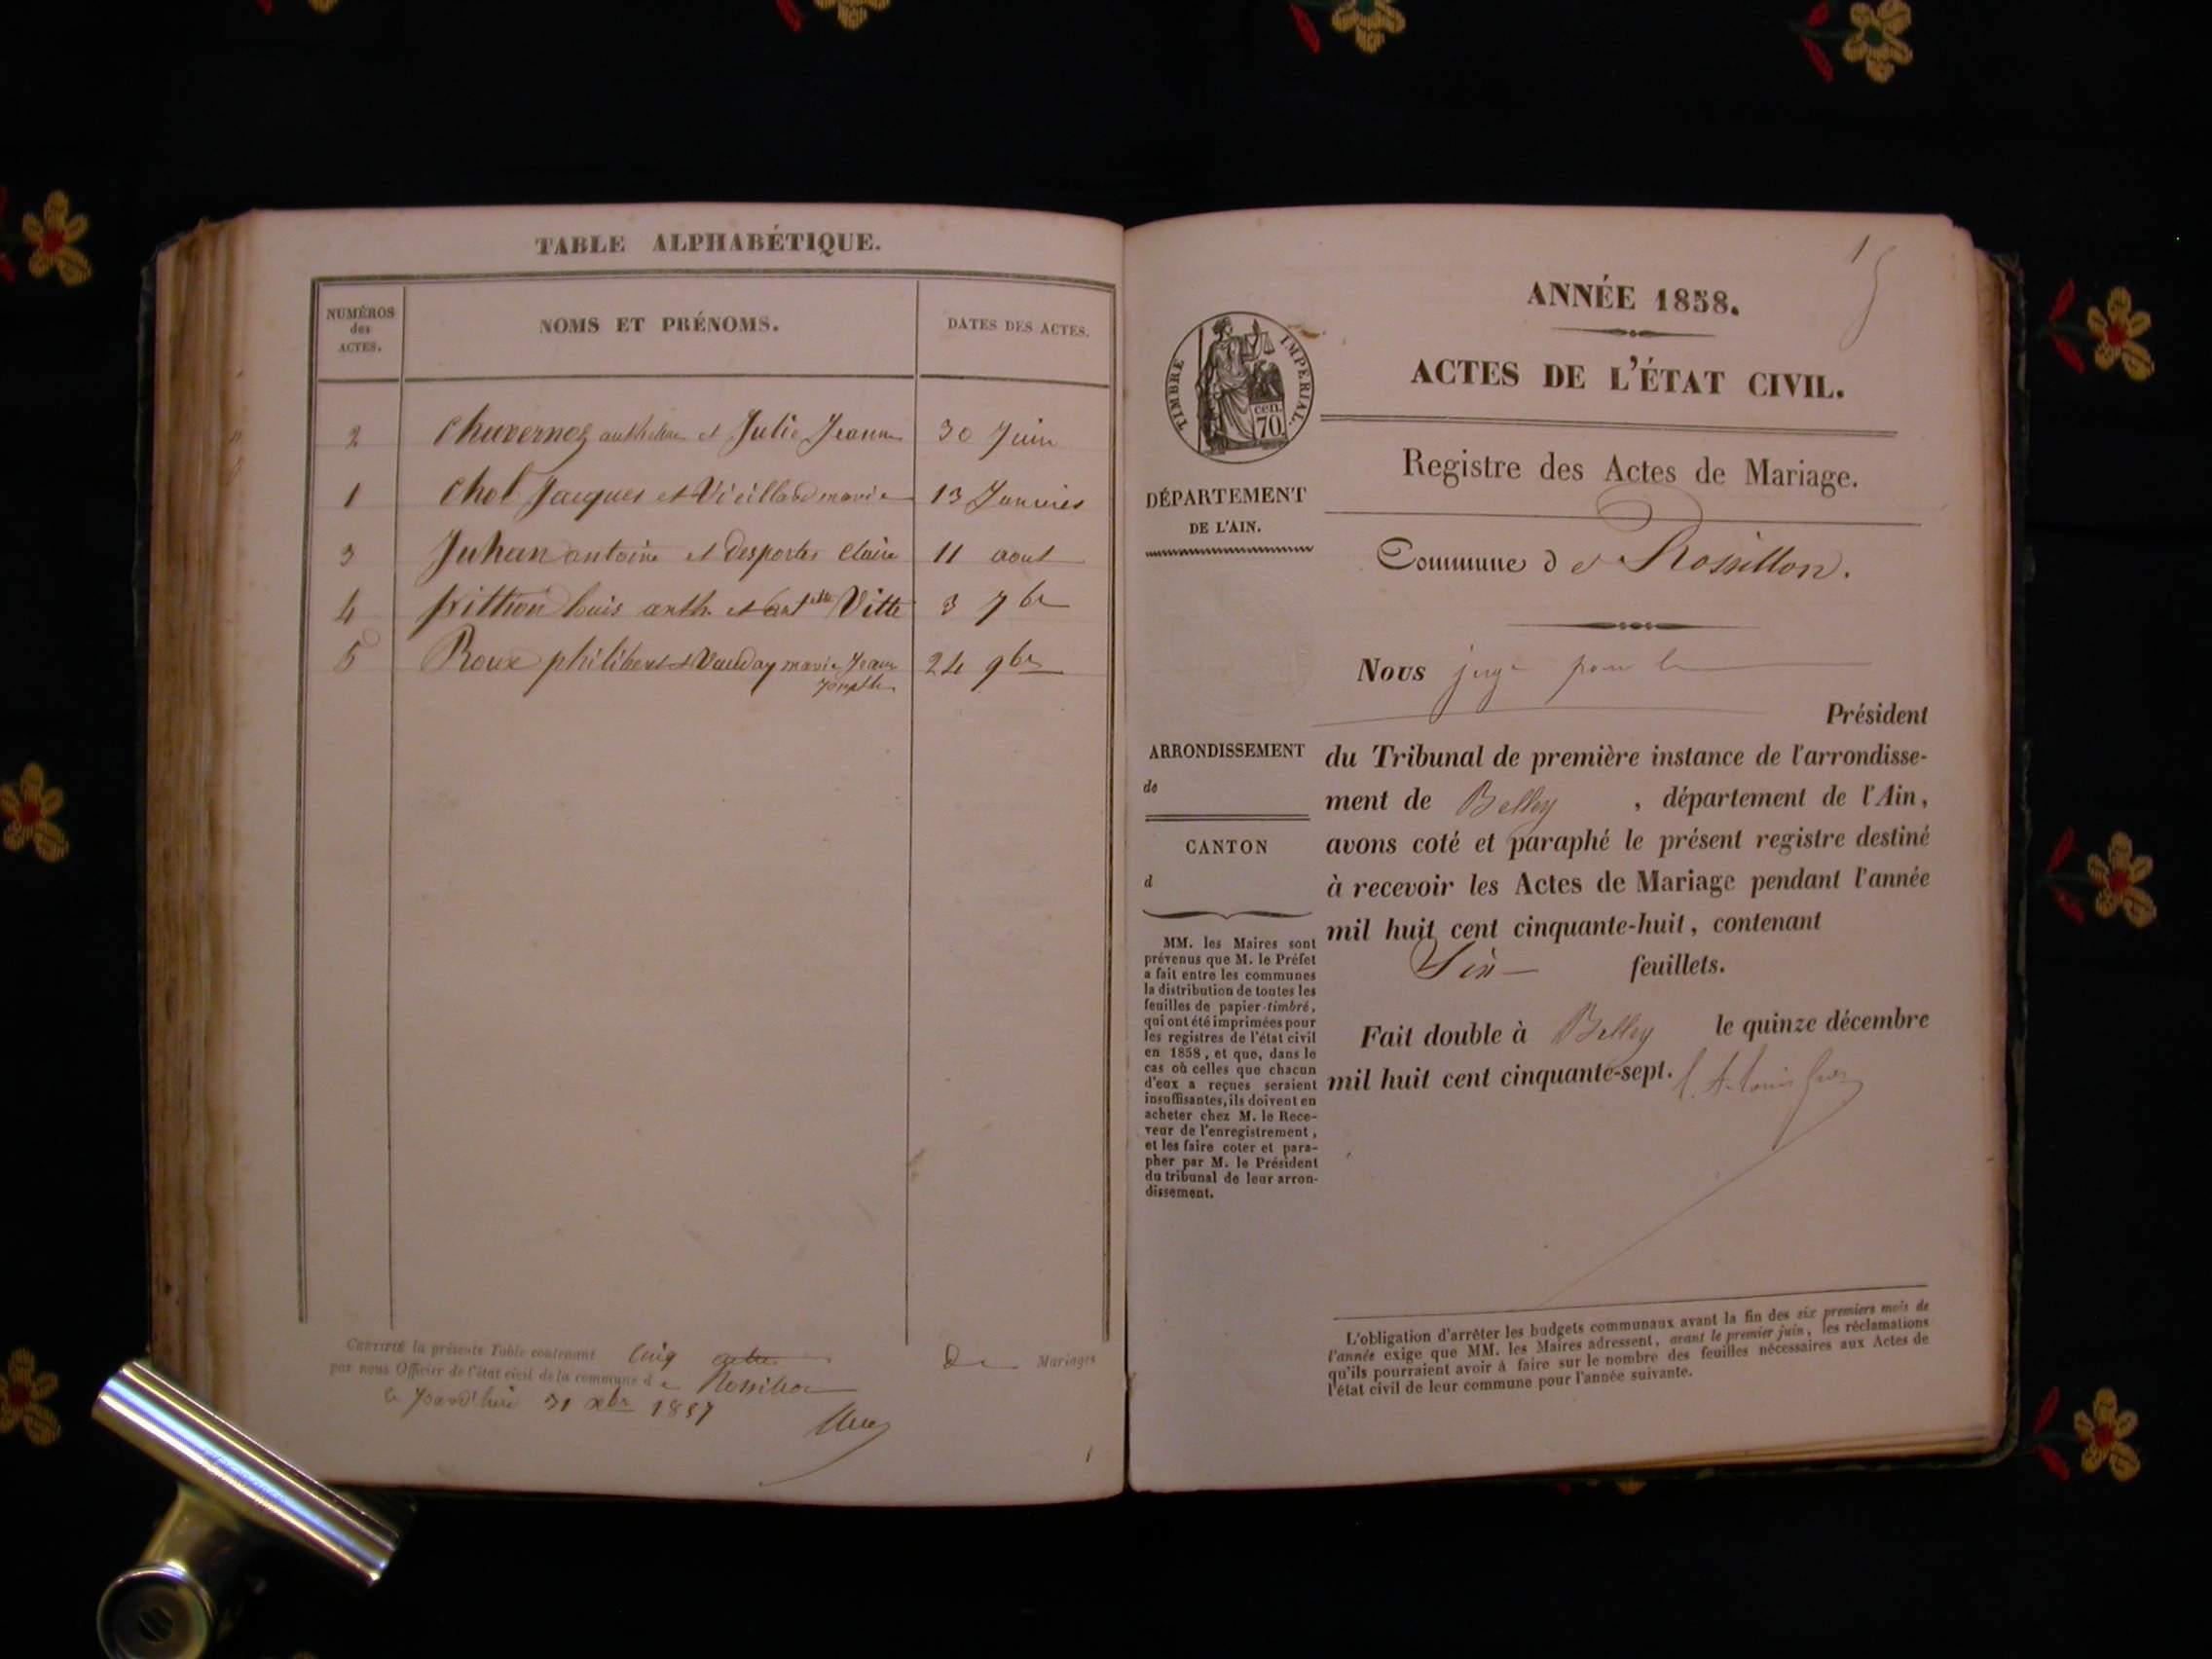 TABLE ALPHABÉTIQUE.
NUMÉROS des ACTES.
NOMS ET PRÉNOMS.
DATES DES ACTES.
2 Chuvernoz et Julie Jeanne 30 Juin
1 Chol Jacques et Vieillard marie 13 Janvier
3 Juhan antoine et Desportes Claire 11 aout
4 louis anth. et Vitte 3 7bre
5 Roux philibert et Vauday marie Jeanne 24 9bre
Josephte
CERTIFIÉ la présente Table contenant Cinq actes De Mariages
par nous Officier de l'état civil de la commune de Rossillon
31 xbre 1857
1
ANNÉE 1858.
ACTES DE L'ÉTAT CIVIL.
Registre des Actes de Mariage.
TIMBRE IMPÉRIAL.
cen.
70
DÉPARTEMENT
DE L'AIN.
Commune de Rossillon.
Nous juge pour le
Président
du Tribunal de première instance de l'arrondisse-
ment de Belley, département de l'Ain,
avons coté et paraphé le présent registre destiné
à recevoir les Actes de Mariage pendant l'année
mil huit cent cinquante-huit, contenant
Six feuillets.
Fait double à Belley le quinze décembre
mil huit cent cinquante-sept.
ARRONDISSEMENT
de
CANTON
d
MM. les Maires sont
prévenus que M. le Préfet
a fait entre les communes
la distribution de toutes les
feuilles de papier-timbré,
qui ont été imprimées pour
les registres de l'état civil
en 1858, et que, dans le
cas où celles que chacun
d'eux a reçues seraient
insuffisantes, ils doivent en
acheter chez M. le Rece-
veur de l'enregistrement,
et les faire coter et para-
pher par M. le Président
du tribunal de leur arron-
dissement.
L'obligation d'arrêter les budgets communaux avant la fin des six premiers mois de
l'année exige que MM. les Maires adressent, avant le premier juin, les réclamations
qu'ils pourraient avoir à faire sur le nombre des feuilles nécessaires aux Actes de
l'état civil de leur commune pour l'année suivante.